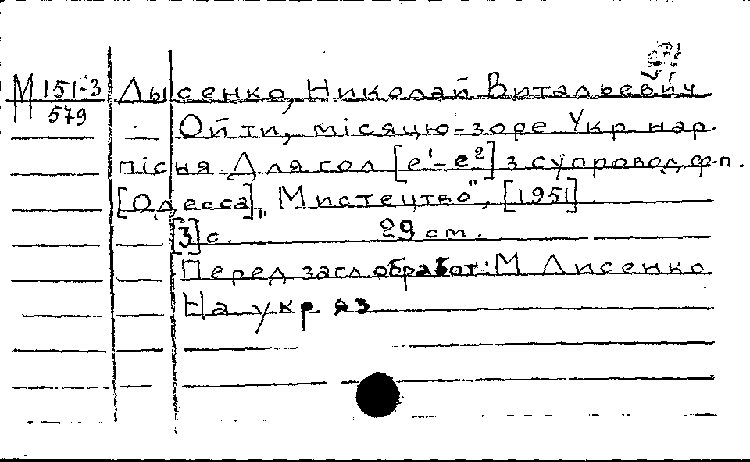 М 151-3 Лысенко, Николай Витальевич
579
Ой ти, місяцю-зоре Укр нар.
пісня Для гол [e¹-e²] з супровод, фп.
[Одесса], "Мистецтво", [1951]
[3] с. 29 см.
Перед загл обработ: М Лисенко
На укр яз